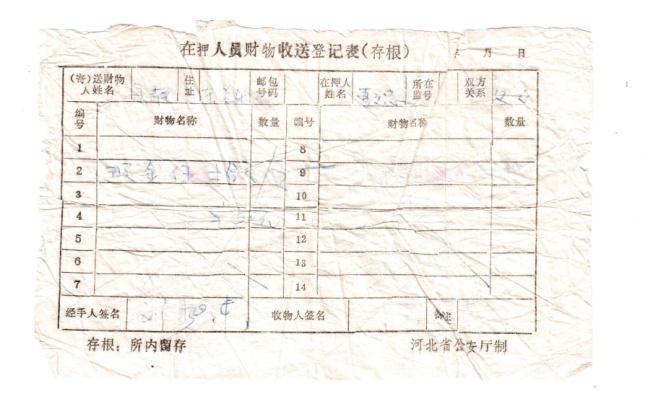 在押人员财物收送登记表(存根) 年 月 日
(寄)送财物人姓名 住址 邮包号码 在押人姓名 所在监号 双方关系
编号 财物名称 数量 编号 财物名称 数量
1 8
2 现金 9
3 10
4 11
5 12
6 13
7 14
经手人签名 收物人签名 备注
存根:所内留存 河北省公安厅制